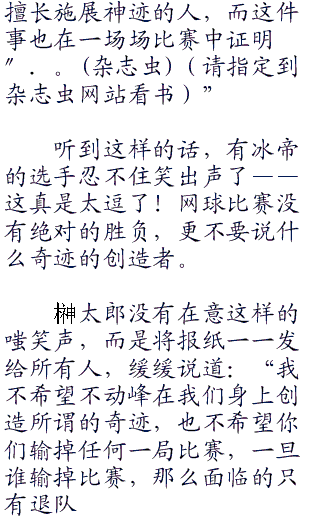 擅长施展神迹的人，而这件
事也在一场场比赛中证明
〞．。(杂志虫)（请指定到
杂志虫网站看书）”
听到这样的话，有冰帝
的选手忍不住笑出声了——
这真是太逗了！网球比赛没
有绝对的胜负，更不要说什
么奇迹的创造者。
榊太郎没有在意这样的
嗤笑声，而是将报纸一一发
给所有人，缓缓说道：“我
不希望不动峰在我们身上创
造所谓的奇迹，也不希望你
们输掉任何一局比赛，一旦
谁输掉比赛，那么面临的只
有退队